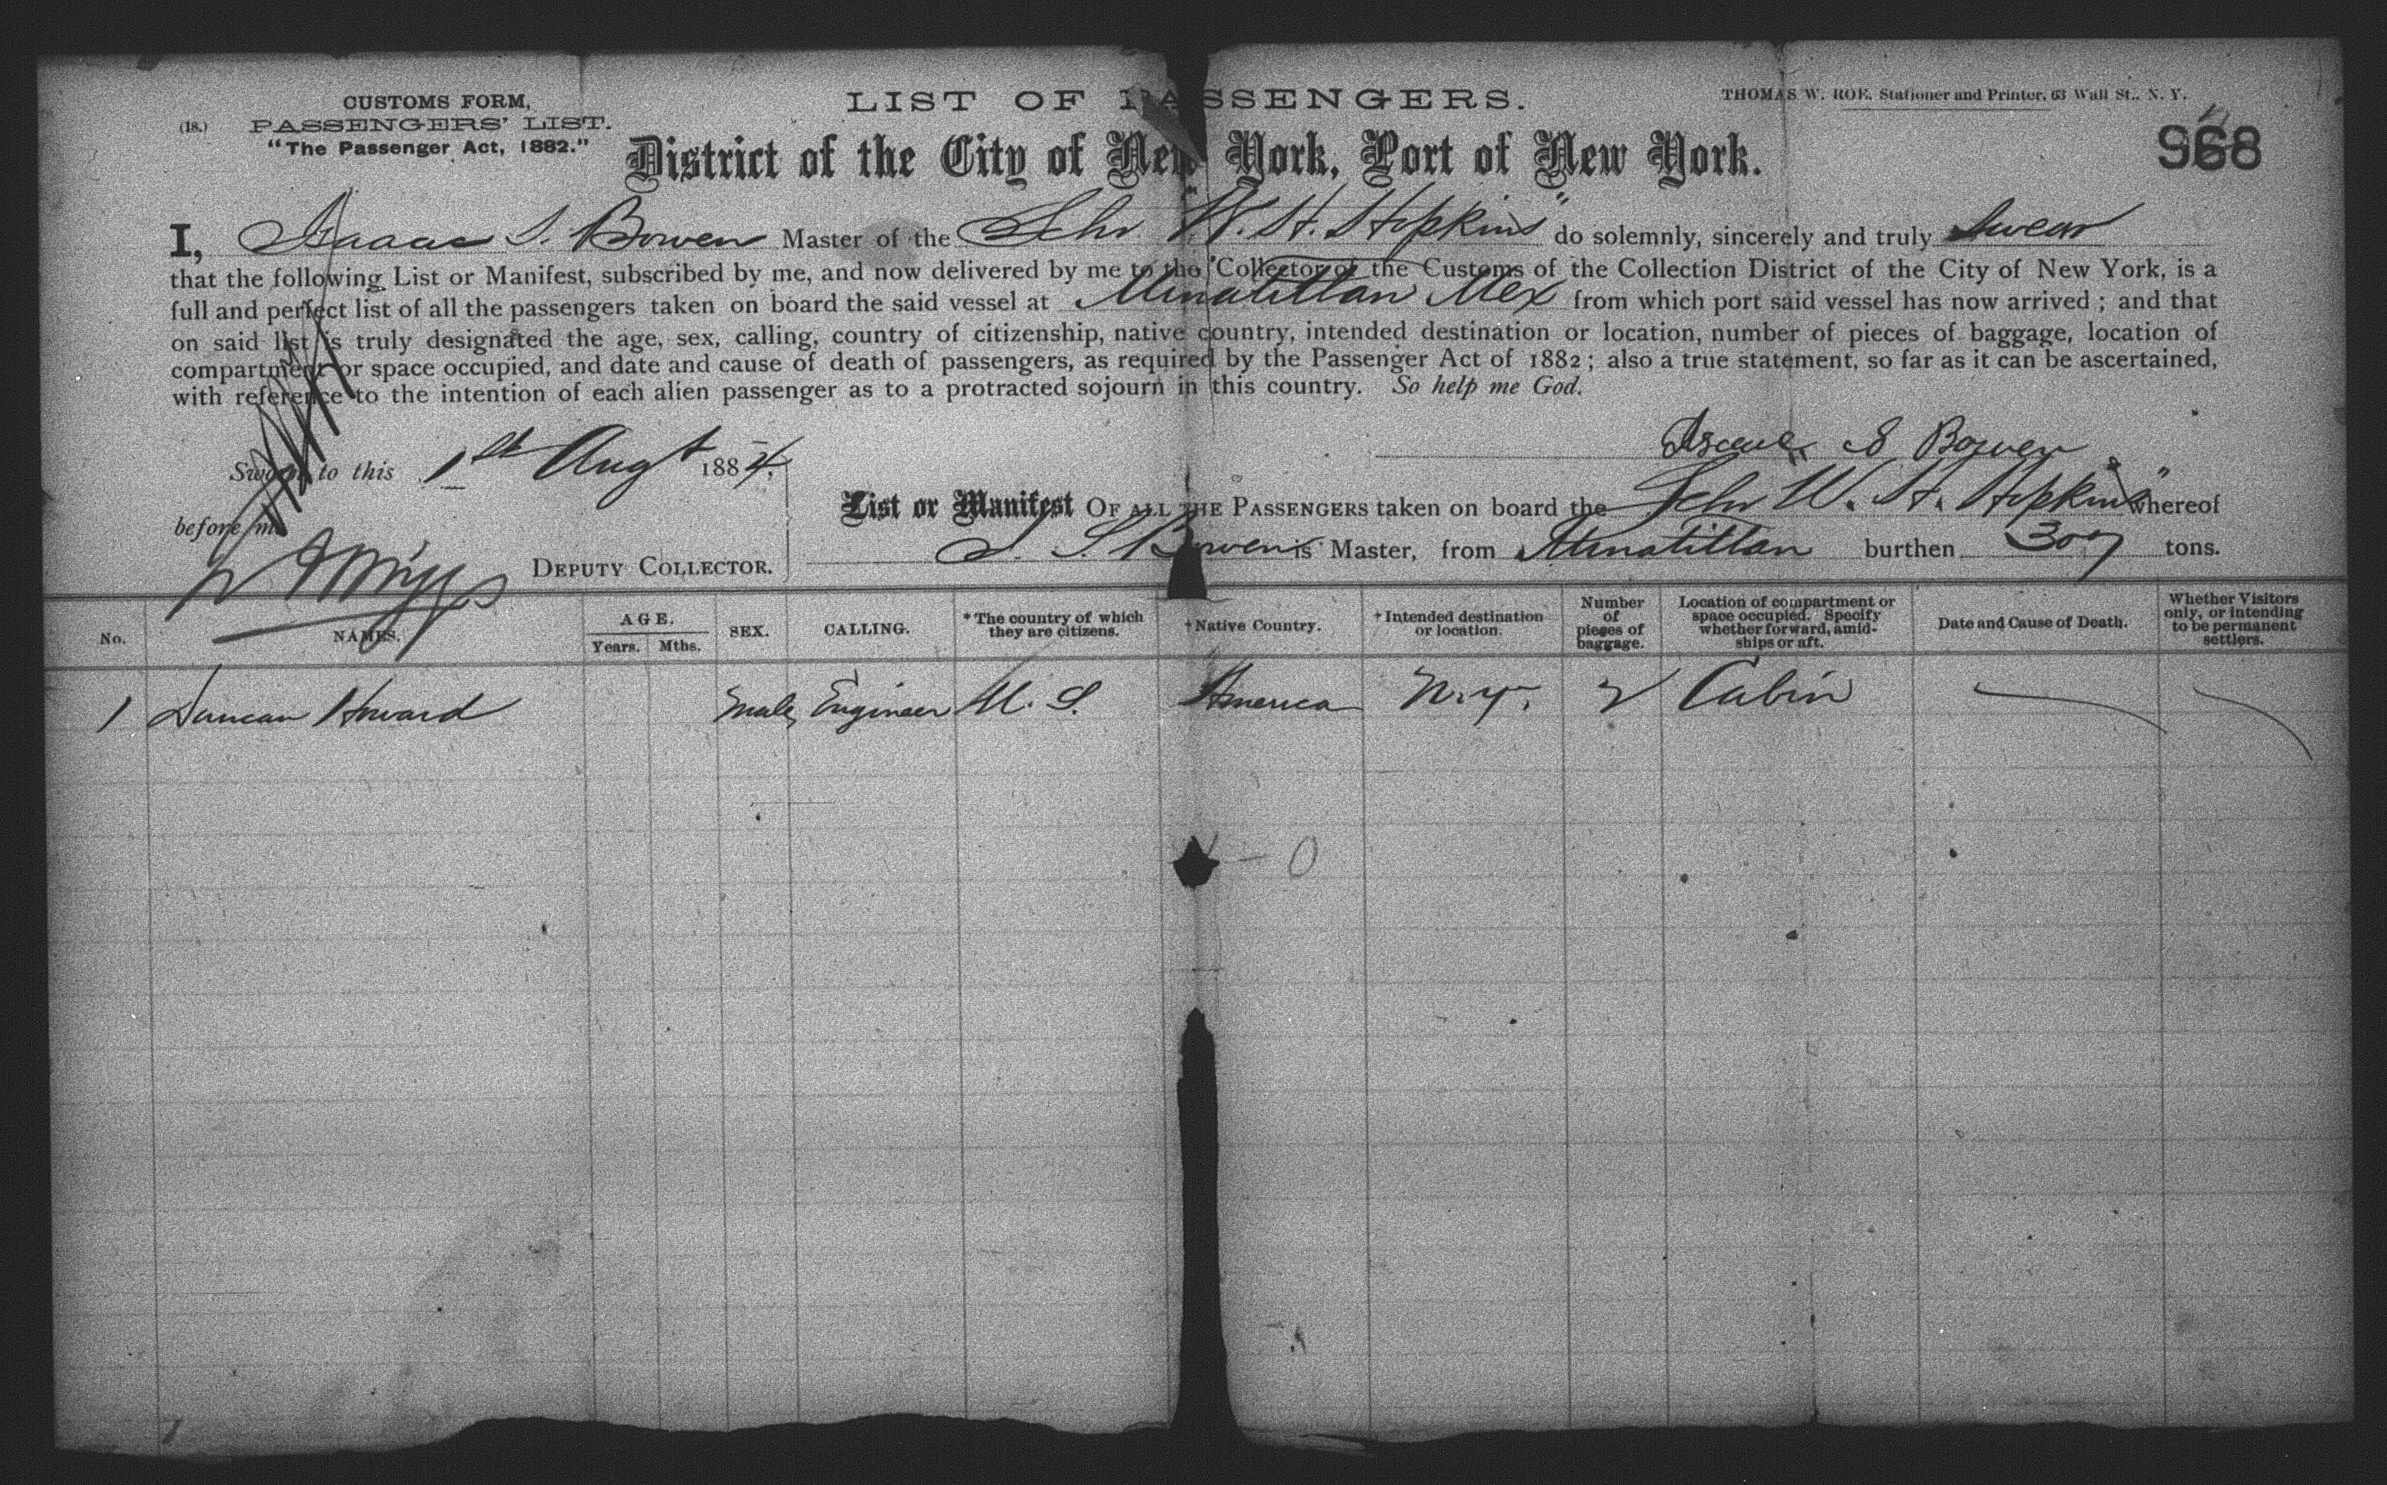 CUSTOMS FORM,
(18.) PASSENGERS' LIST.
"The Passenger Act, 1882."
LIST OF PASSENGERS.
THOMAS W. ROE, Stationer and Printer, 63 Wall St., N. Y.
District of the City of New York, Port of New York.
968
I, Isaac S. Bowen Master of the Schr "W. H. Hopkins" do solemnly, sincerely and truly Swear
that the following List or Manifest, subscribed by me, and now delivered by me to the Collector of the Customs of the Collection District of the City of New York, is a
full and perfect list of all the passengers taken on board the said vessel at Minatitlan Mex from which port said vessel has now arrived; and that
on said list is truly designated the age, sex, calling, country of citizenship, native country, intended destination or location, number of pieces of baggage, location of
compartment or space occupied, and date and cause of death of passengers, as required by the Passenger Act of 1882; also a true statement, so far as it can be ascertained,
with reference to the intention of each alien passenger as to a protracted sojourn in this country. So help me God.
Isaac S Bowen
Sworn to this 1st Augt 1884.
before me
DEPUTY COLLECTOR.
List or Manifest OF ALL THE PASSENGERS taken on board the Schr W. H. Hopkins" whereof
I. S. Bowen is Master, from Minatitlan burthen 307 tons.
No. NAMES. AGE. Years. Mths. SEX. CALLING. *The country of which they are citizens. †Native Country. †Intended destination or location. Number of pieces of baggage. Location of compartment or space occupied. Specify whether forward, amidships or aft. Date and Cause of Death. Whether Visitors only, or intending to be permanent settlers.
1 Duncan Howard Male Engineer U. S. America N. Y. 2 Cabin
- 0